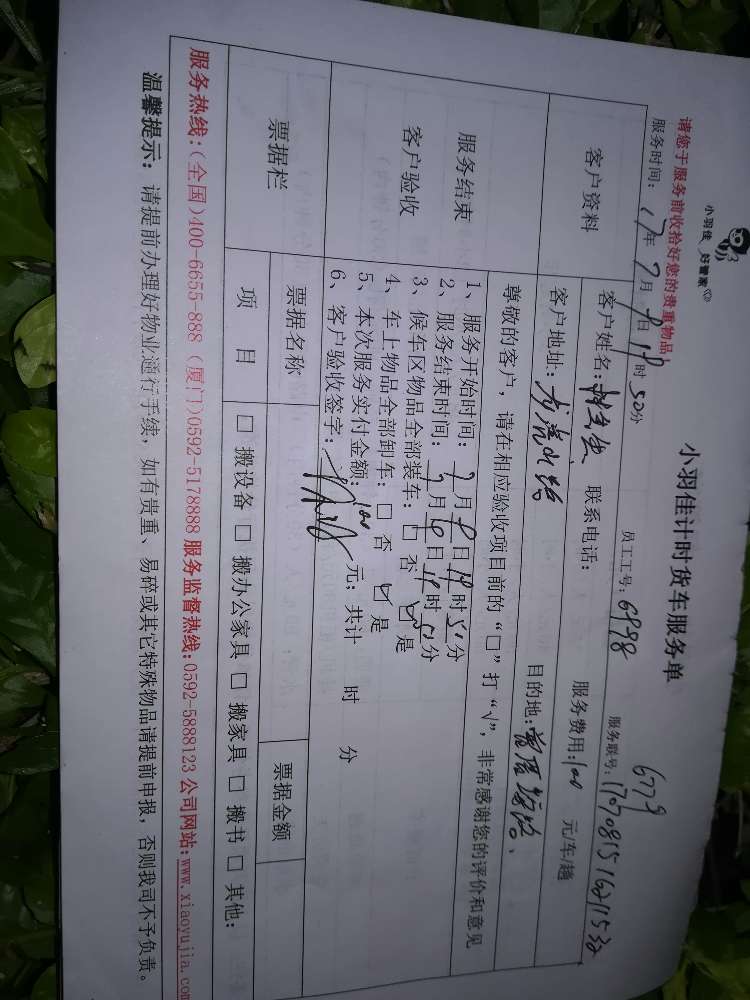 小羽佳 好管家
小羽佳计时货车服务单
6779
请您于服务前收拾好您的贵重物品
服务时间：17年7月8日18时50分 员工工号：6998 服务联号：
客户资料
客户姓名： 联系电话： 服务费用：100 元/车/趟
客户地址： 目的地：
服务结束
客户验收
尊敬的客户，请在相应验收项目前的“□”打“√”，非常感谢您的评价和意见
1、服务开始时间：7月8日18时51分
2、服务结束时间：7月8日19时51分
3、候车区物品全部装车：□ 否 ☑ 是
4、车上物品全部卸车：□ 否 ☑ 是
5、本次服务实付金额：100元；共计 时 分
6、客户验收签字：
票据栏
票据名称
票据金额
项 目
□ 搬设备 □ 搬办公家具 □ 搬家具 □ 搬书 □ 其他：
服务热线：(全国)400-6655-888 (厦门)0592-5178888 服务监督热线：0592-5888123 公司网站：www.xiaoyujia.com
温馨提示：请提前办理好物业通行手续，如有贵重、易碎或其它特殊物品请提前申报，否则我司不予负责。